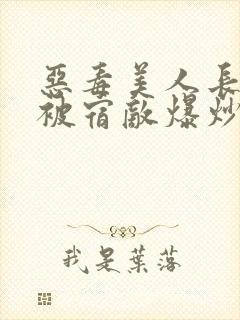 惡毒美人長
被宿敵爆炒
我是葉落